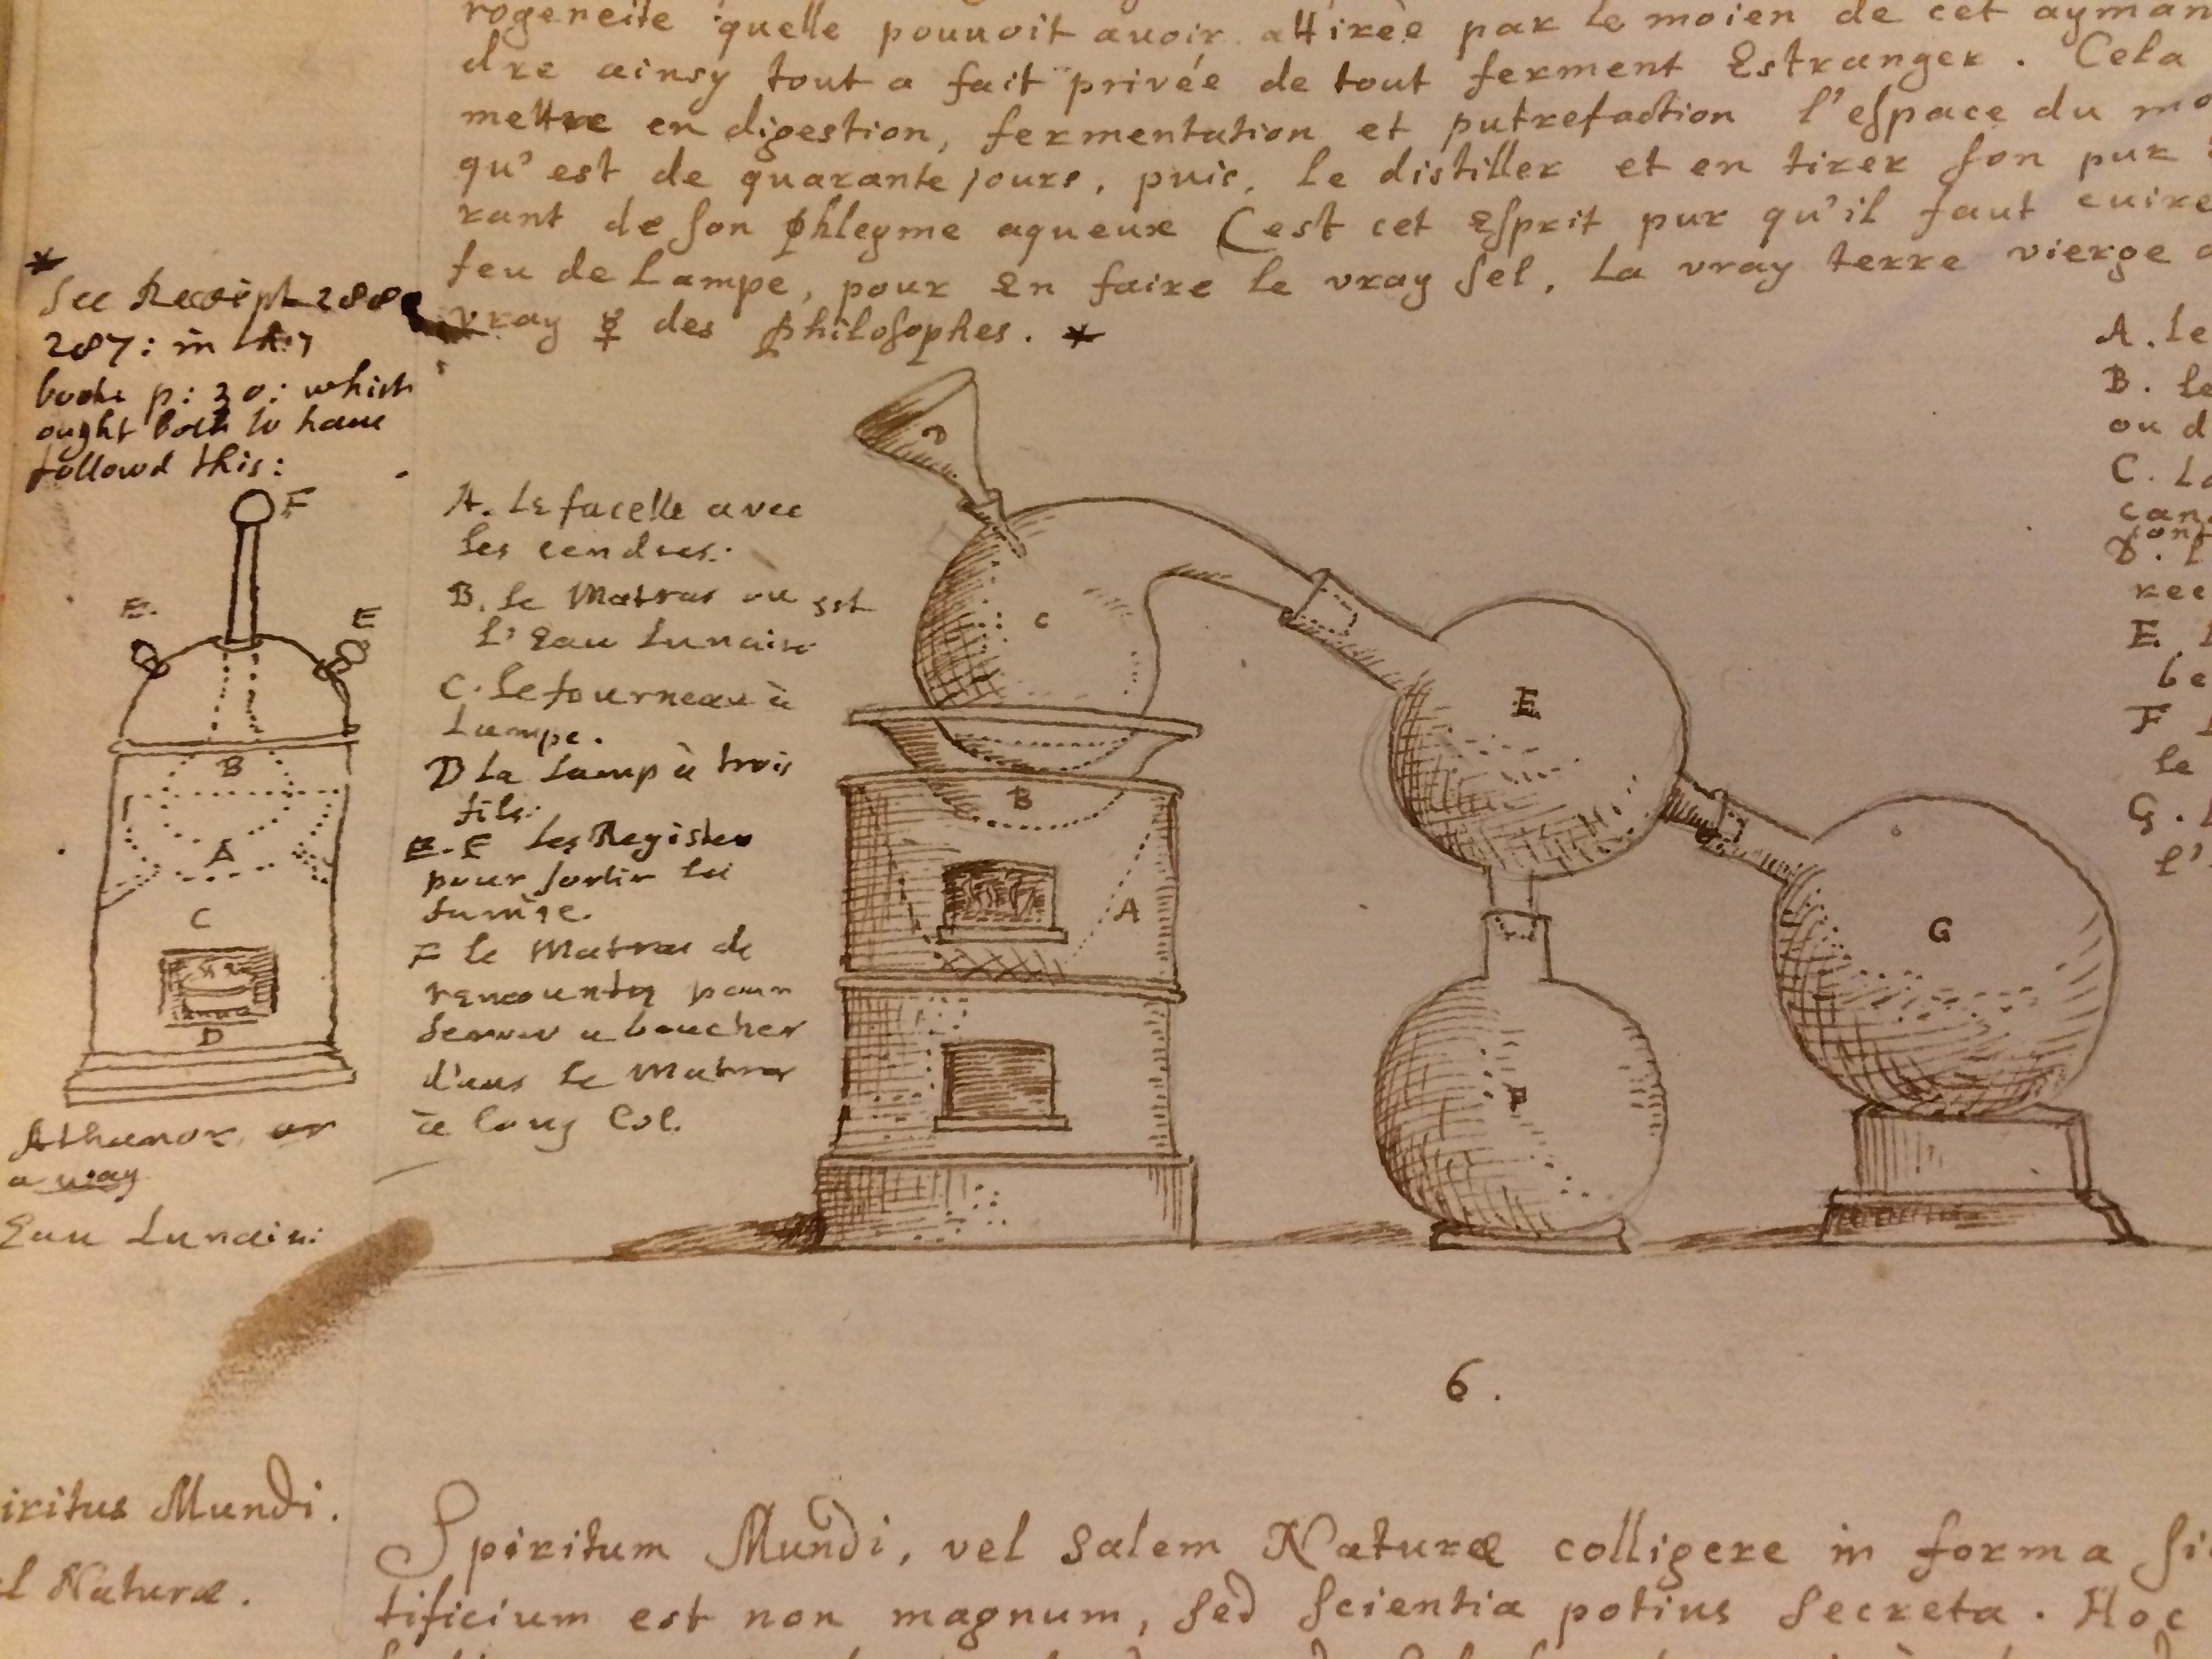 rogeneite quelle pouuoit auoir attirée par le moien de cet ayman
dre ainsy tout a fait privée de tout ferment Estranger. Cela
mettre en digestion, fermentation et putrefaction l'espace du mo
qu'est de quarante jours, puis, le distiller et en tirer son pur
rant de son phlegme aqueux (est cet Esprit pur qu'il faut cuire
feu de Lampe, pour en faire le vray sel, la vray terre vierge
vray ☿ des philosophes. *
*
See Receipt 288
287: in
booke p: 30: which
ought both to haue
followd this:
F
E.
E
B
A
C
D
Athanor, or
a way
Eau Lunaire
A. Le facelle avec
les cendres:
B. le Matras ou est
l'Eau Lunaire
C. Le fourneau à
Lampe.
D La Lamp à trois
fils:
E-E les Register
pour sortir la
fumée.
F le Matras de
rencontre pour
a boucher
d'ans le Matras
à long Col.
D
C
B
A
E
F
G
A. Le
B. Le
ou d
C. La
can
cont
D. L
rec
E.
be
F
le
G.
l'
6.
iritus Mundi.
l Naturæ.
Spiritum Mundi, vel Salem Naturæ colligere in forma si
tificium est non magnum, sed scientia potius secreta. Hoc